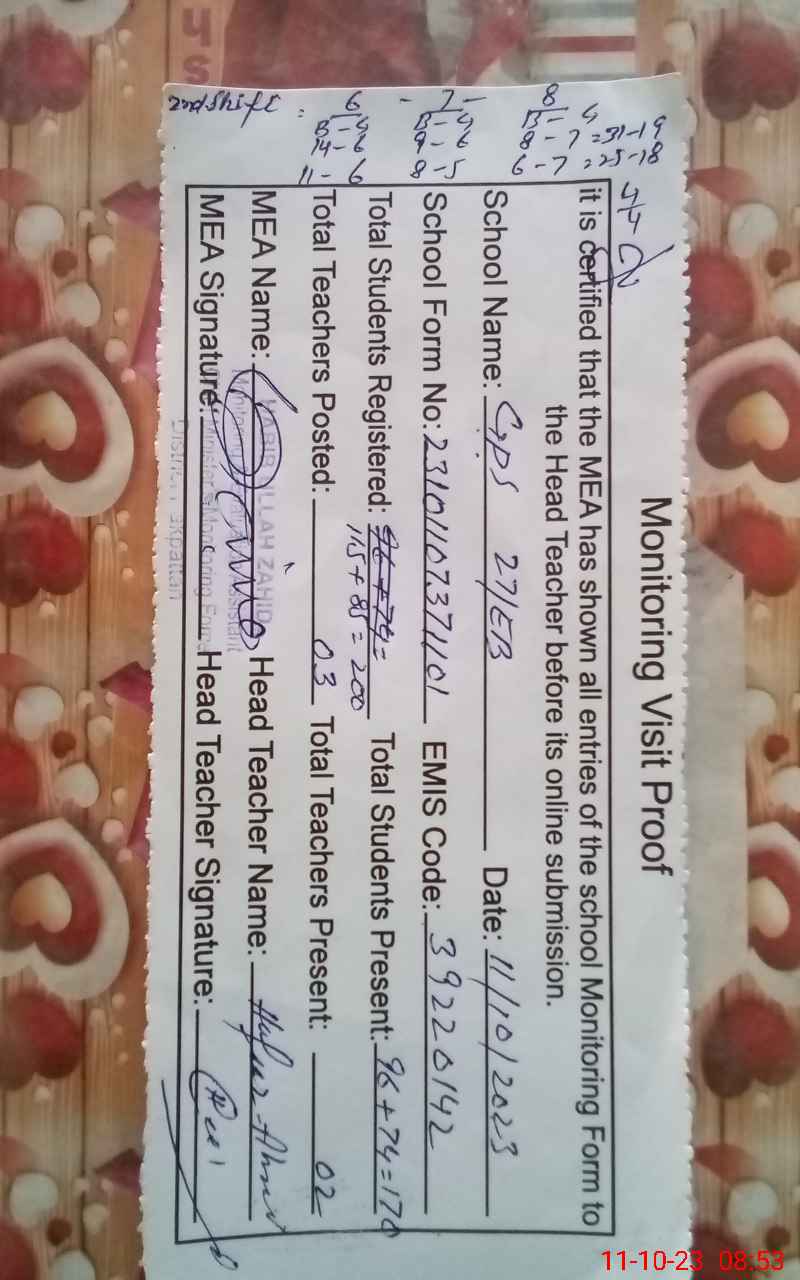 2nd shift =
6
- 7 -
8
8 - 4
14 - 6
11 - 6
9 - 6
8 - 5
8 - 7 = 31 - 19
6 - 7 = 25 - 18
Monitoring Visit Proof
it is certified that the MEA has shown all entries of the school Monitoring Form to
the Head Teacher before its online submission.
School Name: GPS 27/EB Date: 11/10/2023
School Form No: 23101107371101 EMIS Code: 39220142
Total Students Registered: 96 + 74 = Total Students Present: 96 + 74 = 170
115 + 85 = 200
Total Teachers Posted: 03 Total Teachers Present: 02
MEA Name: HABIB ULLAH ZAHID Head Teacher Name: Ahmed
Monitoring Assistant
MEA Signature: Head Teacher Signature:
Monitoring Force
District
11-10-23 08:53